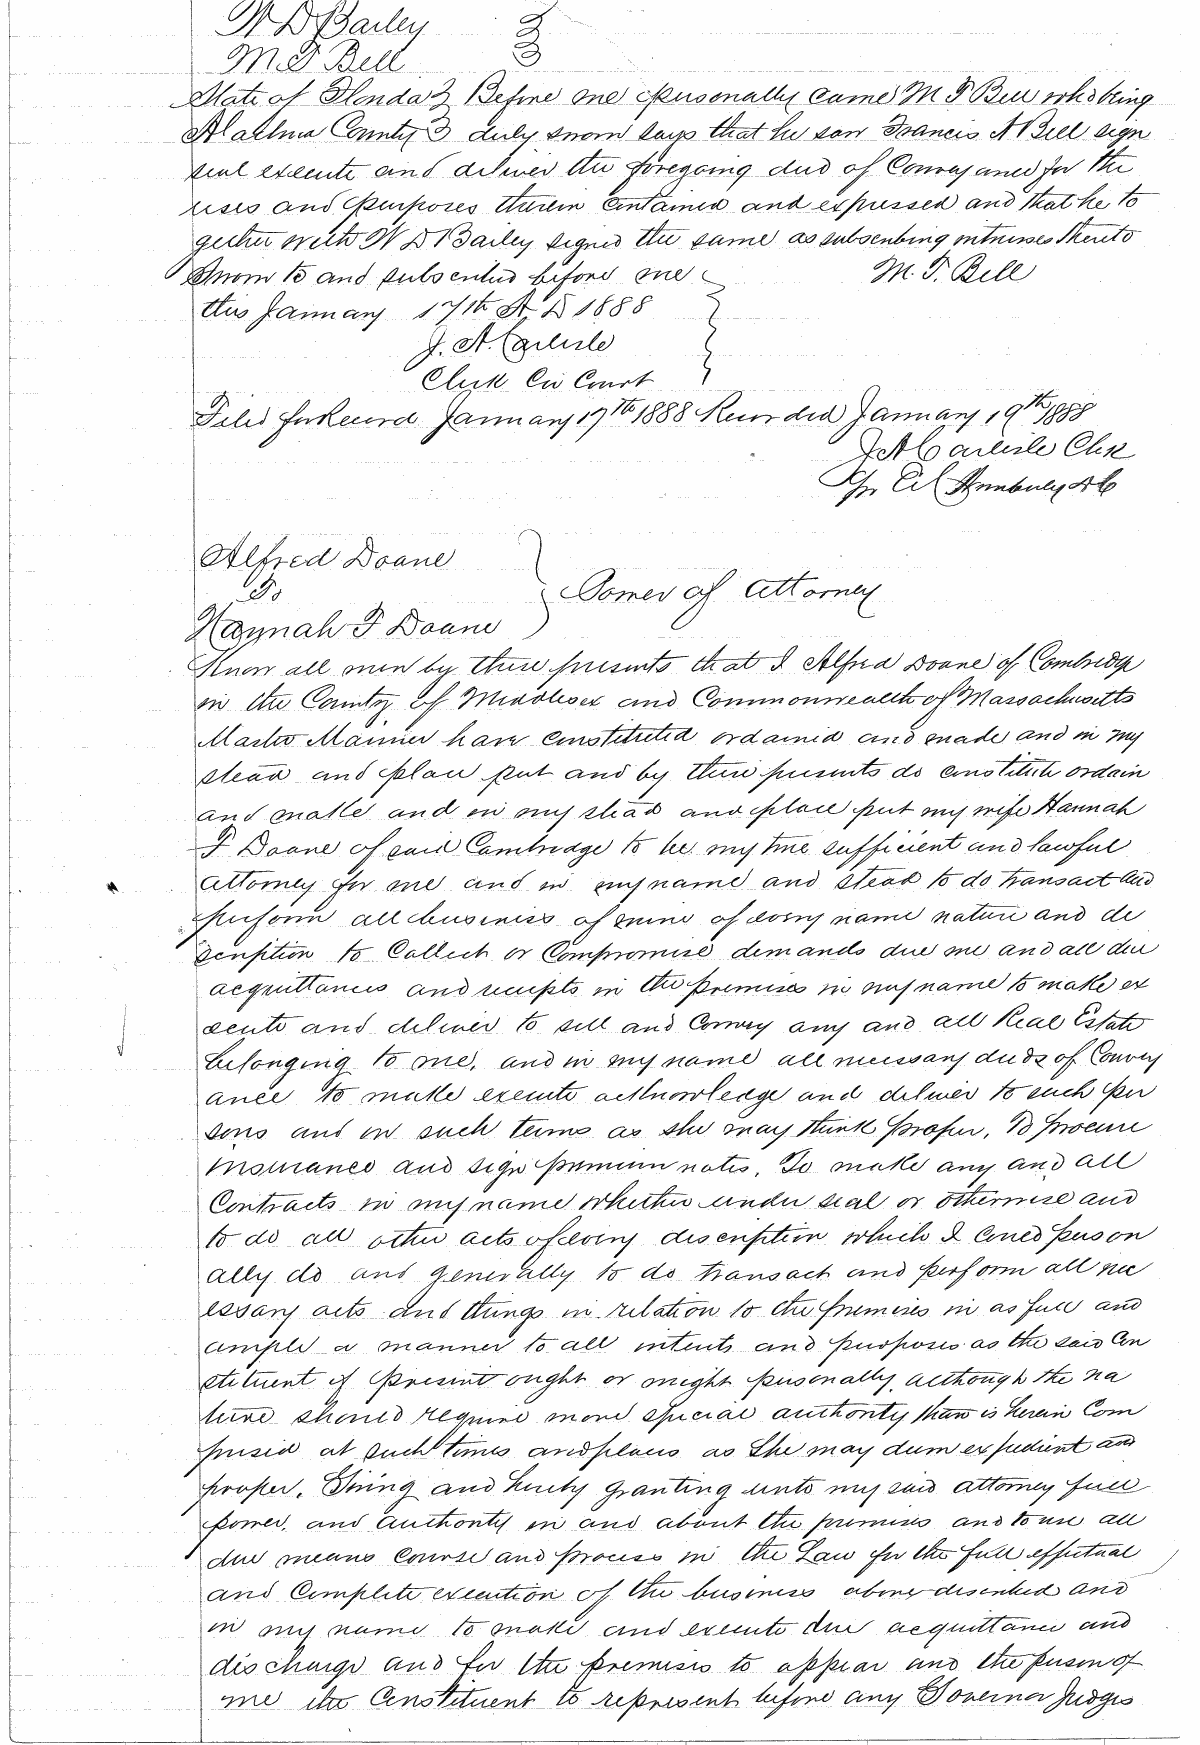 W D Bailey
M. F Bell
State of Florida } Before me personally came M F Bell who being
Alachua County } duly sworn says that he saw Francis A Bell sign
seal execute and deliver the foregoing deed of Conveyance for the
uses and purposes therein contained and expressed and that he to
gether with W D Bailey signed the same as subscribing witnesses thereto
Sworn to and subscribed before me M. F. Bell
this January 17th A D 1888
J. A. Carlisle
Clerk Cir Court
Filed for Record January 17th 1888 Recorded January 19th 1888
J A Carlisle Clk
Per
Alfred Doane
To
Hannah F Doane
Power of attorney
Know all men by these presents that I Alfred Doane of Cambridge
in the County of Middlesex and Commonwealth of Massachusetts
Master Mariner have constituted ordained and made and in my
stead and place put and by these presents do constitute ordain
and make and in my stead and place put my wife Hannah
F Doane of said Cambridge to be my true sufficient and lawful
attorney for me and in my name and stead to do transact and
perform all business of mine of every name nature and de
scription to Collect or Compromise demands due me and all due
acquittances and receipts in the premises in my name to make ex
ecute and deliver to sell and Convey any and all Real Estate
belonging to me, and in my name all necessary deeds of Convey
ance to make execute acknowledge and deliver to such per
sons and on such terms as she may think proper, To procure
insurance and sign premium notes, To make any and all
Contracts in my name whether under seal or otherwise and
to do all other acts of every discription which I could person
ally do and generally to do transact and perform all nec
essary acts and things in relation to the premises in as full and
ample a manner to all intents and purposes as the said Con
stituent if present ought or might personally, although the na
ture should require more special authority than is herein Com
prised at such times and places as She may deem expedient and
proper, Giving and hereby granting unto my said attorney full
power, and authority in and about the premises and to use all
due means course and process in the Law for the full effectual
and Complete execution of the business above described and
in my name to make and execute due acquittance and
discharge and for the premises to appear and the person of
me the Constituent to represent before any Governor Judges